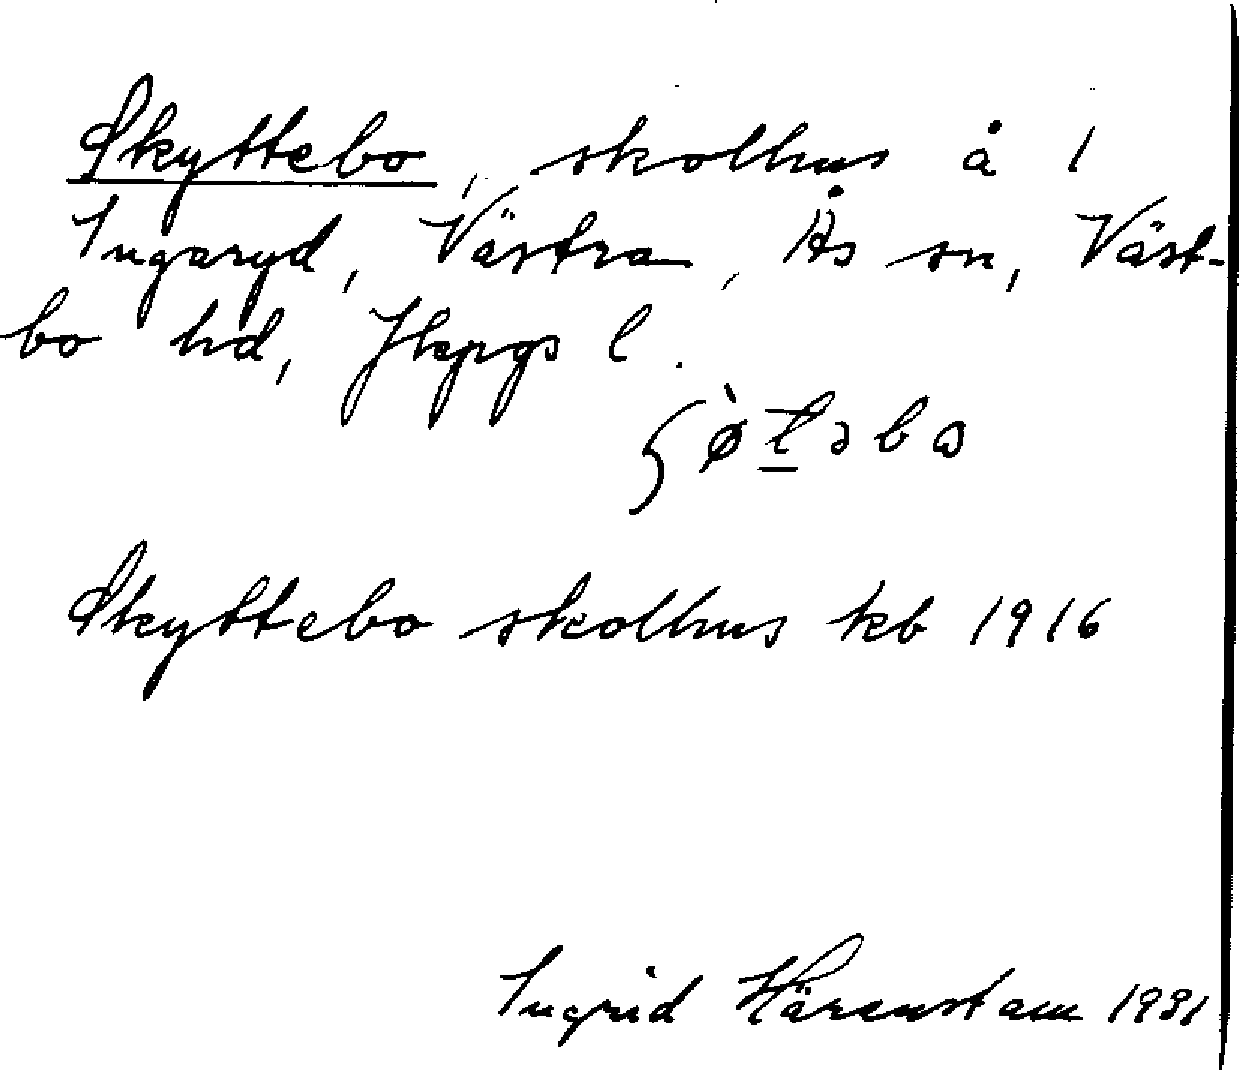 Skyttebo, skolhus å 1
Ingaryd, Västra, Ås sn, Väst-
bo hd, Jkpgs l.
Skyttebo skolhus kb 1916
Ingrid Härenstam 1931